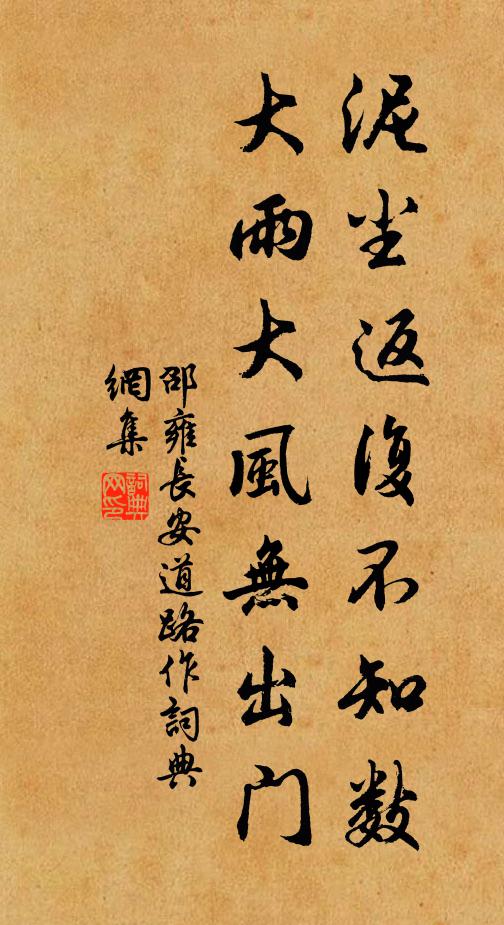 泥尘返復不知數
大雨大風無出门
邵雍長安道路作詞典
網集
詞典
网印